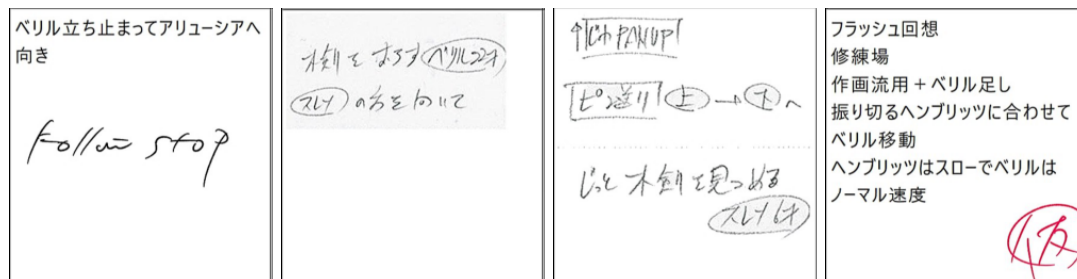 ベリル立ち止まってアリューシアへ
向き
Follow STOP
木剣をおろすベリル22才
スレナの方を向いて
↑じわPANUP
ピン送り 上→下へ
じっと木剣を見つめる
スレナ6才
フラッシュ回想
修練場
作画流用+ベリル足し
振り切るヘンブリッツに合わせて
ベリル移動
ヘンブリッツはスローでベリルは
ノーマル速度
仮